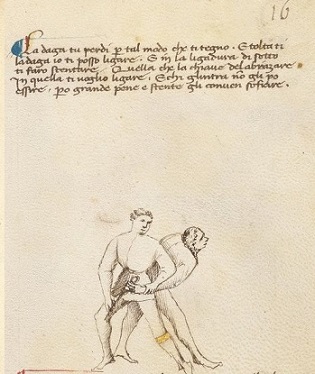 16
La daga tu perdi p tal modo che ti tegno. E tolta ti
la daga io ti posso ligare. E in la ligadura di sotto
ti faro stentare. Quella che la chiave del abrazare
In quella ti voglio ligare. E chi glintra no gli po
essire. p o grande pene e stente gli conven sofrire.